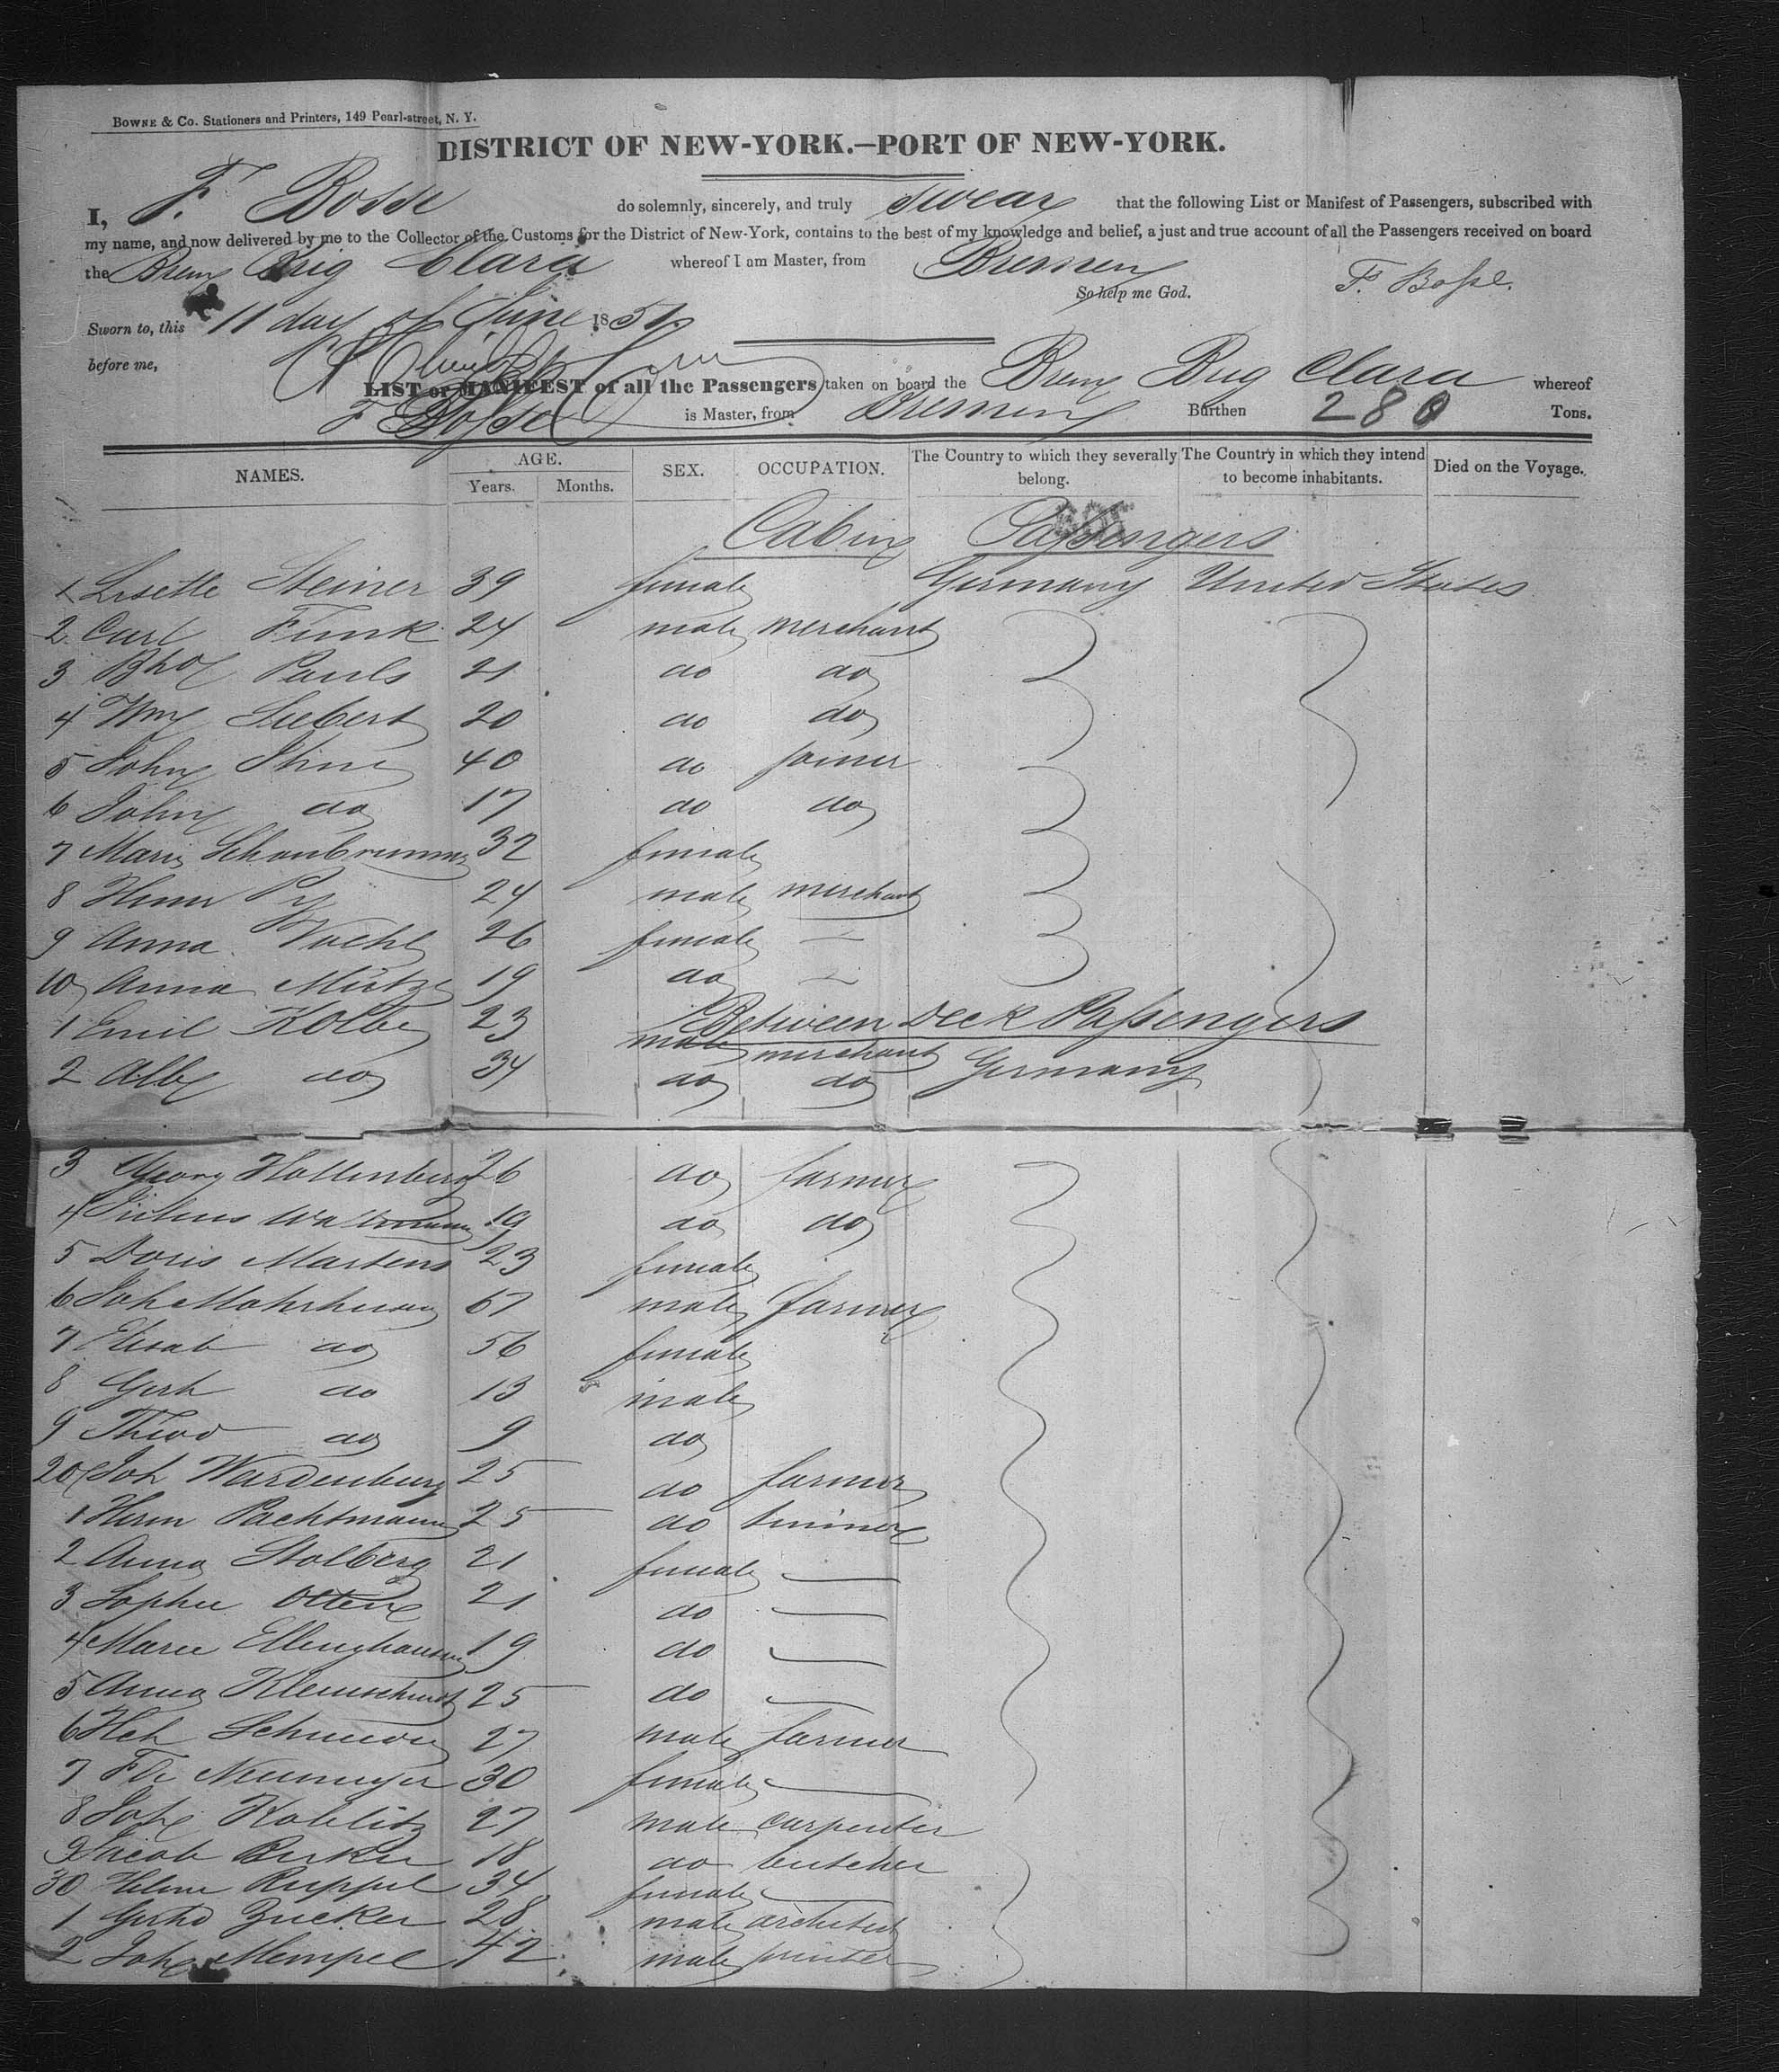 BOWNE & Co. Stationers and Printers, 149 Pearl-street, N. Y.
DISTRICT OF NEW-YORK.—PORT OF NEW-YORK.
I, F. Bosse do solemnly, sincerely, and truly swear that the following List or Manifest of Passengers, subscribed with
my name, and now delivered by me to the Collector of the Customs for the District of New-York, contains to the best of my knowledge and belief, a just and true account of all the Passengers received on board
the Brem Brig Clara whereof I am Master, from Bremen
So help me God. F. Bosse.
Sworn to, this 11 day of June 1851
before me,
LIST or MANIFEST of all the Passengers taken on board the Brem Brig Clara whereof
F Bosse is Master, from Bremen Burthen 280 Tons.
NAMES. AGE. SEX. OCCUPATION. The Country to which they severally belong. The Country in which they intend to become inhabitants. Died on the Voyage.
Years. Months.
Cabin Passengers
1 Lisette Steiner 39 female Germany United States
2 Carl Funk 24 male merchant
3 Pauls 21 do do
4 Wm Siebert 20 do do
5 John 40 do joiner
6 John do 17 do do
7 Marie Schonbrunner 32 female
8 24 male merchant
9 Anna 26 female —
10 Anna Mütze 19 do —
Between Deck Passengers
1 Emil Kolbe 23 male merchant Germany
2 Alb do 34 do do
3 Georg Hollenberg 26 do farmer
4 Julius 19 do do
5 Doris Martens 23 female
6 Joh 67 male farmer
7 Elisab do 56 female
8 Gerh do 13 male
9 Theod do 9 do
20 Joh Wardenburg 25 do farmer
1 Herm Pachtmann 25 do
2 Anna Stolberg 21 female —
3 Sophie Otten 21 do —
4 Marie Ellinghausen 19 do —
5 Anna 25 do —
6 Hch 27 male farmer
7 Neumeyer 30 female —
8 Joh 27 male carpenter
9 Jacob 18 do butcher
30 Helene Ruppel 34 female —
1 Gerhd Zucker 28 male architect
2 Joh Mempel 42 male